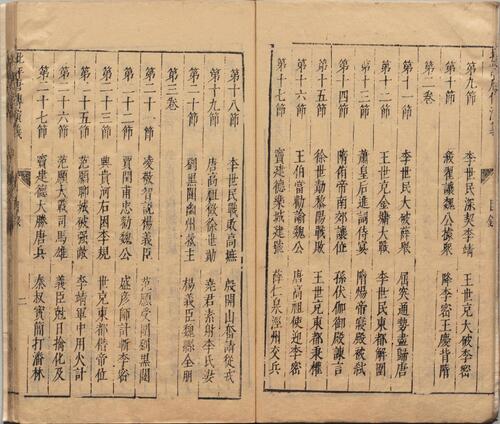 第九節
李世民深契李靖
王世充大破李密
第十節
殺翟讓魏公據衆
降李密王慶背隋
第二卷
第十一節
李世民大破薛舉
屈突通勢盡歸唐
第十二節
王世充金墉大戰
李世民東都解圍
第十三節
蕭皇后進詞侍宴
隋煬帝寢殿被弒
第十四節
隋侑帝南郊讓位
孫伏伽御殿諫言
第十五節
徐世勣黎陽戰敗
王世充東都秉權
第十六節
王伯當勸諭魏公
唐高祖使迎李密
第十七節
竇建德樂城建號
薛仁杲涇州交兵
第十八節
李世民戰敗高墌
殷開山奮請從戎
第十九節
唐高祖徵徐世勣
堯君素射李氏妻
第二十節
劉黑闥幽州救主
楊義臣魏縣全朋
第三卷
第二十一節
凌敬智説楊義臣
范願受困劉黑闥
第二十二節
賈閏甫忠勸魏公
盛彦師計斬李密
第二十三節
興貴河石因李規
世充東都僭帝位
第二十五節
范願聊城被强敵
李靖軍中用火計
第二十六節
范願大戰司馬雄
義臣尅日擒化及
第二十七節
竇建德大勝唐兵
秦叔寳簡打潘林
二